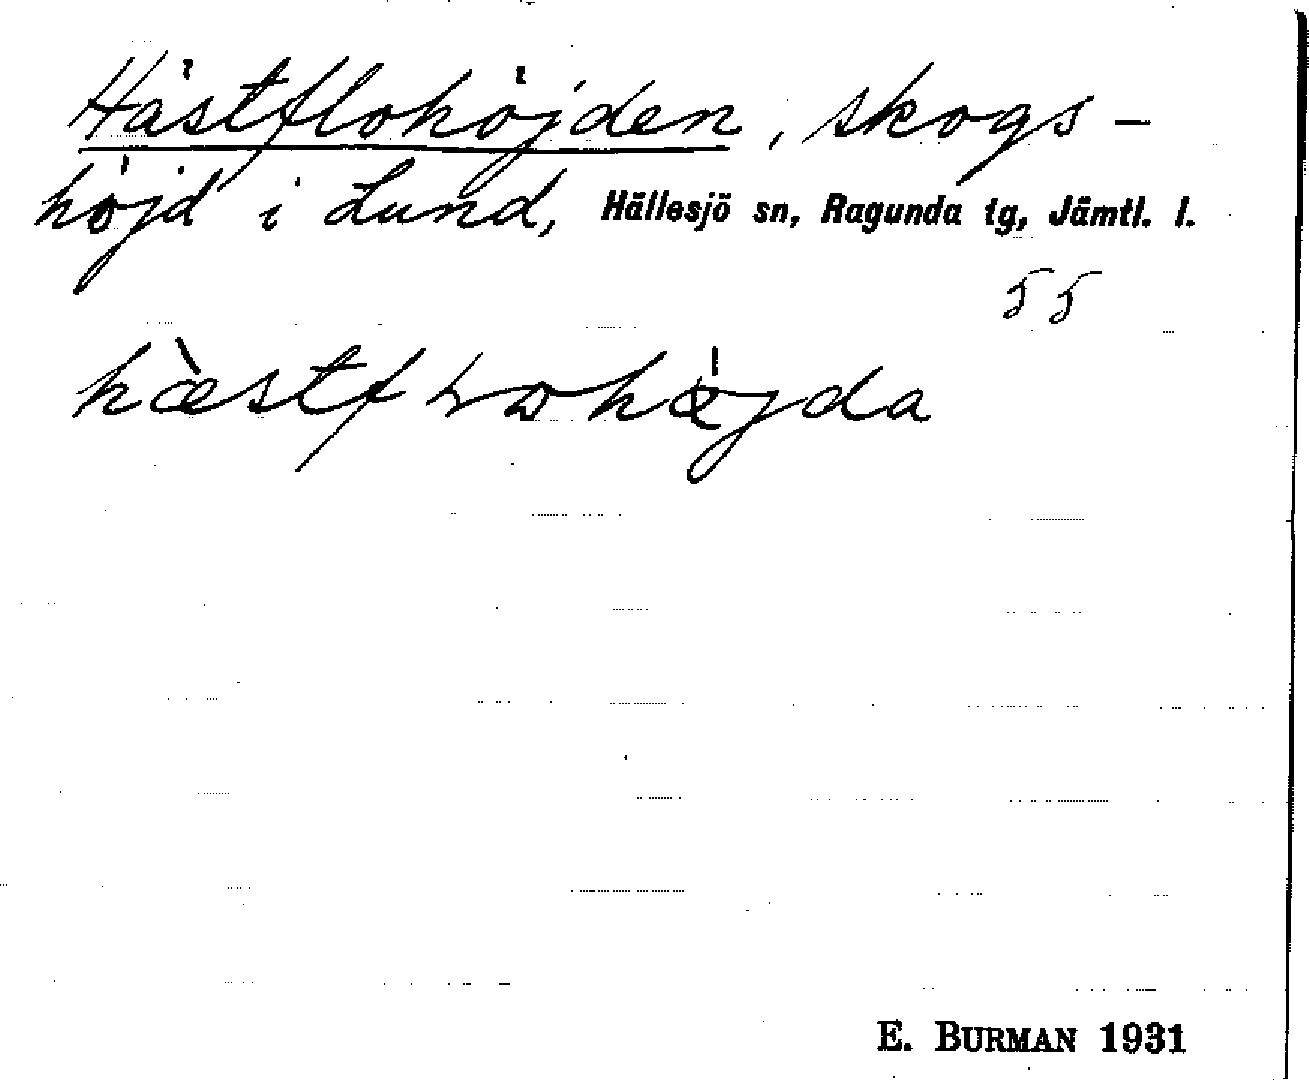 Hästflohöjden, skogs-
höjd i Lund, Hällesjö sn, Ragunda tg, Jämtl. l.
55
E. BURMAN 1931